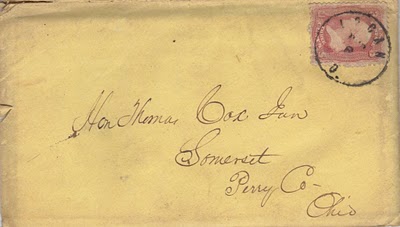 LOGAN
O.
Hon Thomas Cox Jun
Somerset
Perry Co-
Ohio